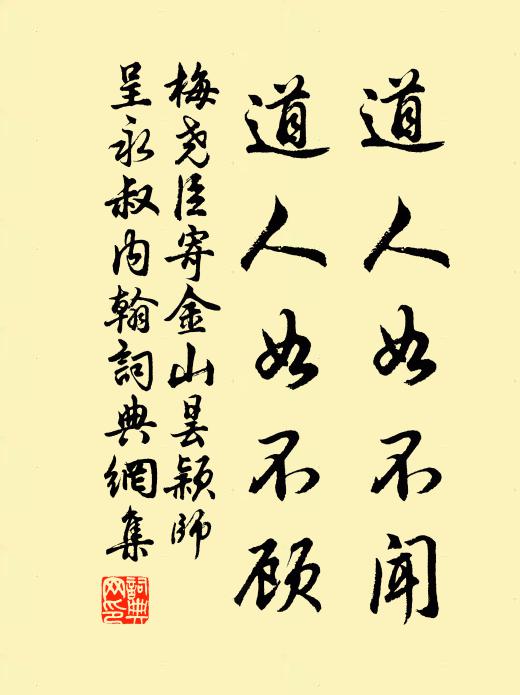 道人如不闻
道人如不顾
梅尧臣寄金山昙颖师
呈永叔内翰詞典網集
詞典网印